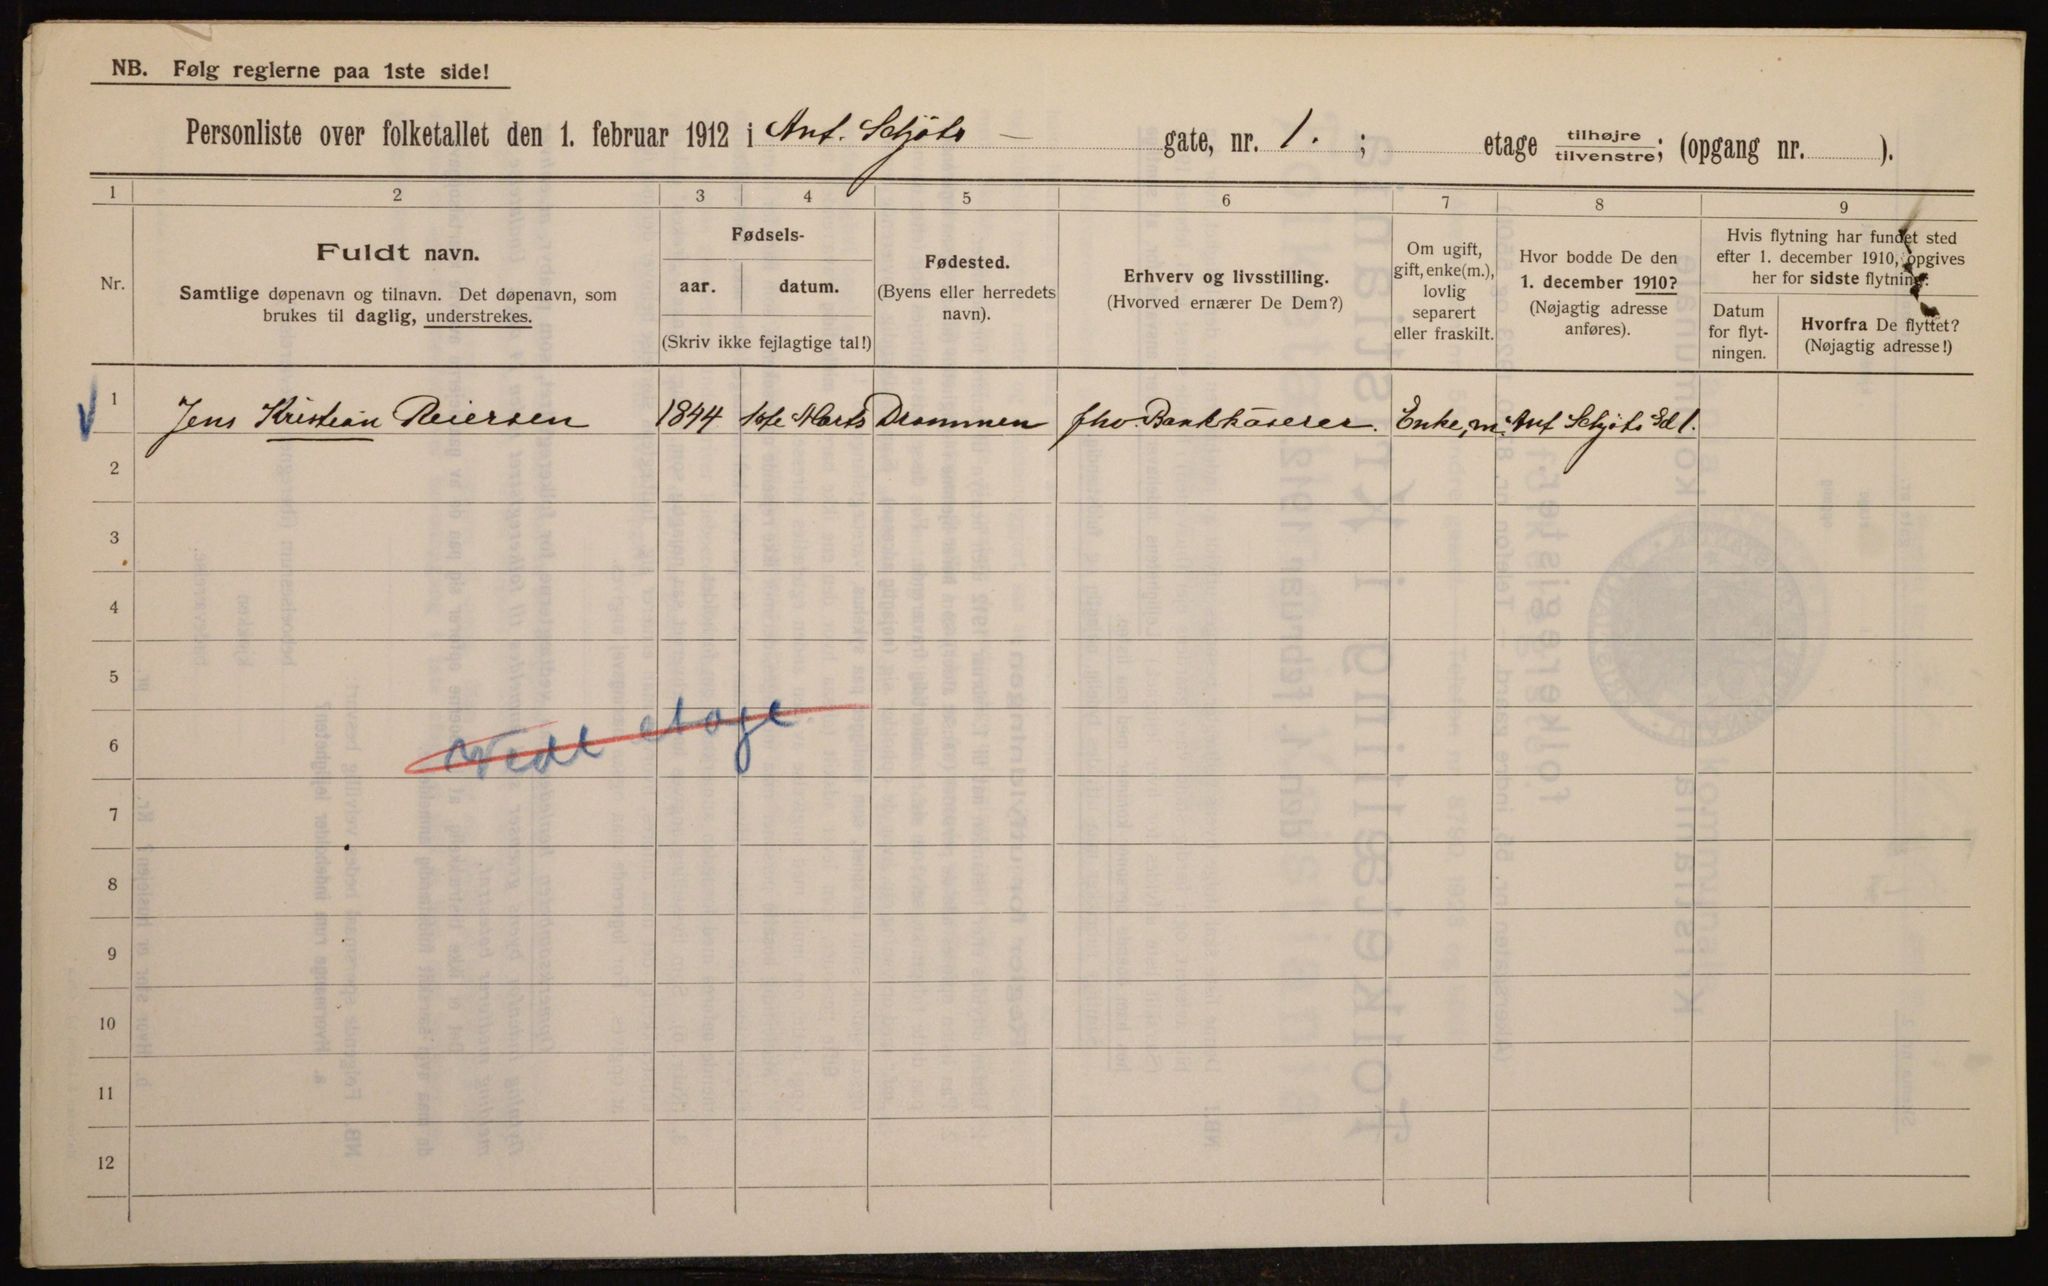 NB. Følg reglerne paa 1ste side!
Personliste over folketallet den 1. februar 1912 i Ant. Schjöts — gate, nr. 1. ; etage tilhøjre/tilvenstre; (opgang nr. ).
1 2 3 4 5 6 7 8 9
Nr.
Fuldt navn.
Samtlige døpenavn og tilnavn. Det døpenavn, som
brukes til daglig, understrekes.
Fødsels-
aar. datum.
(Skriv ikke fejlagtige tal!)
Fødested.
(Byens eller herredets
navn).
Erhverv og livsstilling.
(Hvorved ernærer De Dem?)
Om ugift,
gift, enke(m.),
lovlig
separert
eller fraskilt.
Hvor bodde De den
1. december 1910?
(Nøjagtig adresse
anføres).
Hvis flytning har fundet sted
efter 1. december 1910, opgives
her for sidste flytning:
Datum
for flyt-
ningen.
Hvorfra De flyttet?
(Nøjagtig adresse!)
1 Jens Kristian Reiersen 1844 Marts Drammen fhv. Bankkaserer. Enkem. Ant Schjöts Gd 1.
2
3
4
5
6
etage
7
8
9
10
11
12